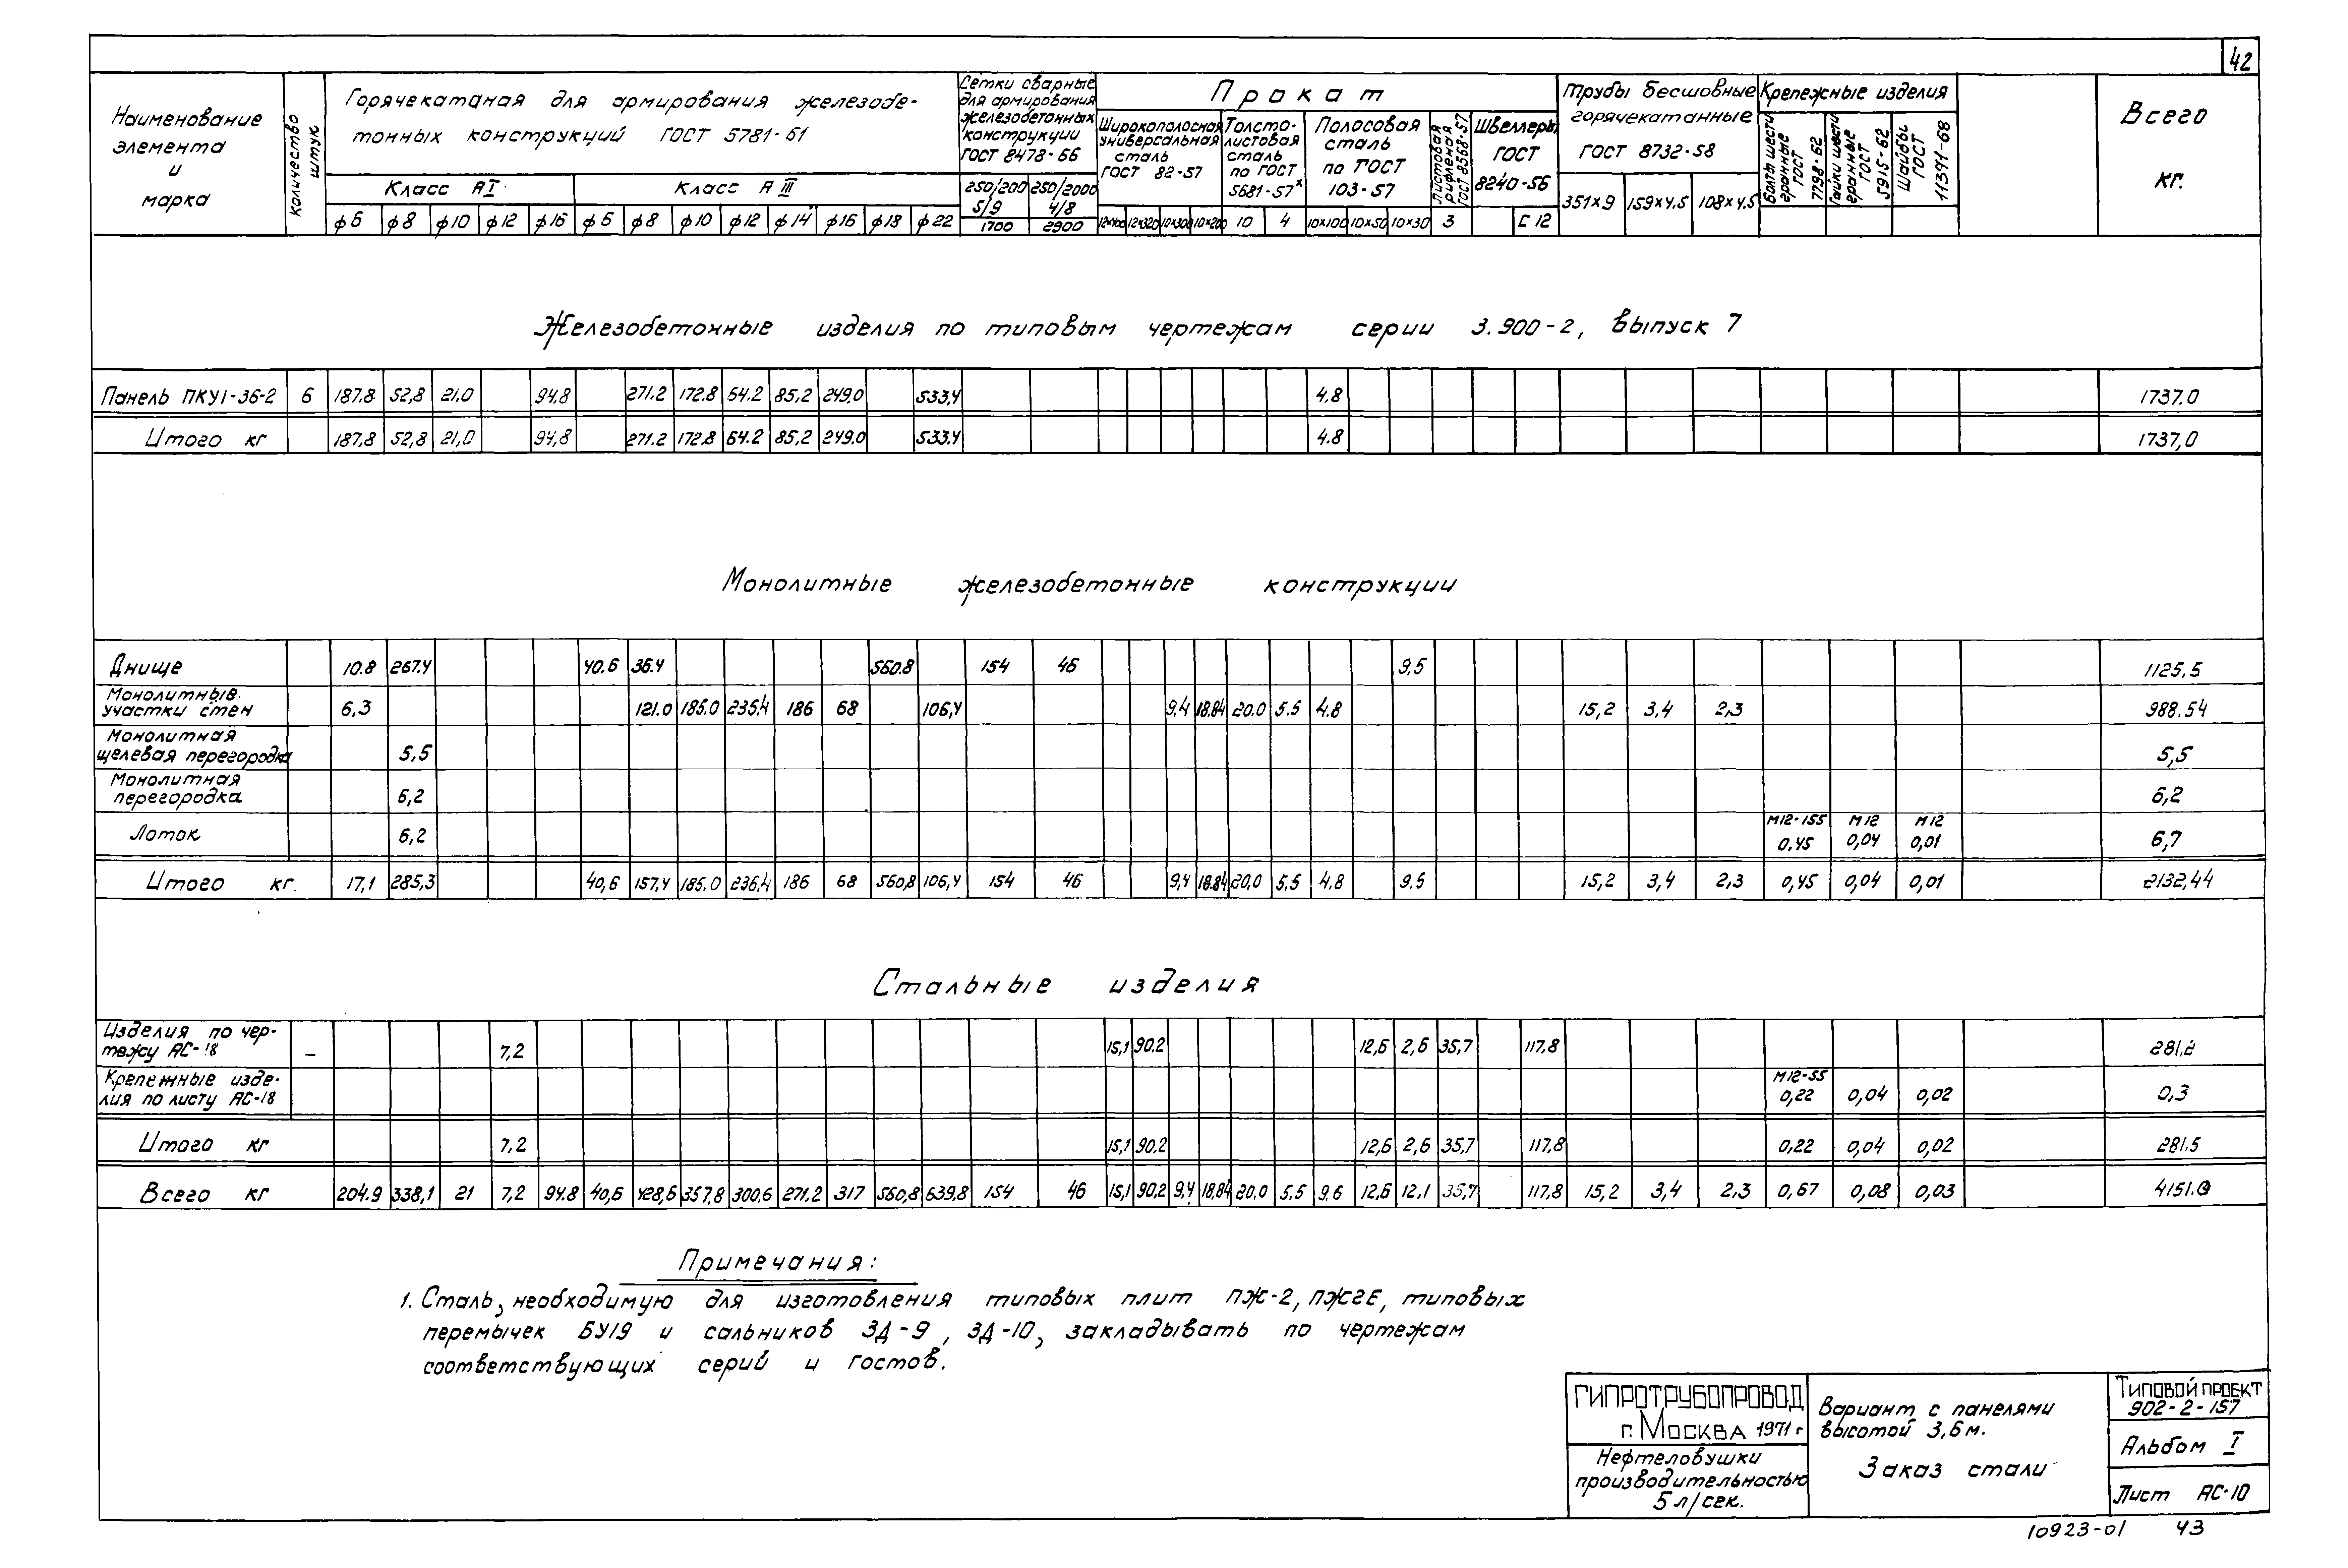 42
Наименование элемента и марка
Количество штук
Горячекатаная для армирования железобе-
тонных конструкций ГОСТ 5781-61
Класс АI Класс А III
ф6 ф8 ф10 ф12 ф16 ф6 ф8 ф10 ф12 ф14 ф16 ф18 ф22
Сетки сварные
для армирования
железобетонных
конструкции
ГОСТ 8478-66
250/200 250/2000
5/9 4/8
1700 2900
Прокат
Широкополосная
универсальная
сталь
ГОСТ 82-57
12×400 12×320 10×300 10×200
Толсто-
листовая
сталь
по ГОСТ
5681-57х
10 4
Полосовая
сталь
по ГОСТ
103-57
10×100 10×50 10×30
Листовая
рифленая
ГОСТ 8568-57
3
Швеллеры
ГОСТ
8240-56
С 12
Трубы бесшовные
горячекатанные
ГОСТ 8732-58
351×9 159×4,5 108×4,5
Крепежные изделия
Болты шести
гранные
ГОСТ
7798-62
Гайки шести
гранные
ГОСТ
5915-62
Шайбы
ГОСТ
11371-68
Всего
кг.
Железобетонные изделия по типовым чертежам серии 3.900-2, выпуск 7
Панель ПКУ1-36-2 6 187.8 52,8 21,0 94.8 271.2 172.8 64.2 85,2 249.0 533,4 4.8 1737.0
Итого кг 187,8 52,8 21,0 94,8 271.2 172.8 64.2 85,2 249.0 533.4 4.8 1737,0
Монолитные железобетонные конструкции
Днище 10.8 267.4 40.6 36.4 560.8 154 46 9,5 1125,5
Монолитные
участки стен 6,3 121.0 185.0 236,4 186 68 106,4 9,4 18.84 20.0 5.5 4.8 15,2 3,4 2,3 988.54
Монолитная
щелевая перегородка 5,5 5,5
Монолитная
перегородка 6,2 6,2
М12-155 М12 М12
Лоток 6,2 0.45 0,04 0,01 6,7
Итого кг. 17,1 285,3 40,6 157,4 185.0 236,4 186 68 560,8 106,4 154 46 9,4 18.84 20,0 5,5 4.8 9.5 15,2 3,4 2,3 0,45 0,04 0,01 2132,44
Стальные изделия
Изделия по чер-
тежу АС-18 – 7,2 15,1 90.2 12,6 2,6 35,7 117,8 281,2
Крепежные изде-
лия по листу АС-18 М12-55 0,22 0,04 0,02 0,3
Итого кг 7,2 15,1 90.2 12,6 2,6 35,7 117,8 0,22 0,04 0,02 281,5
Всего кг 204.9 338,1 21 7,2 94.8 40,6 428,6 357,8 300,6 271,2 317 560,8 639,8 154 46 15,1 90,2 9,4 18,84 20,0 5.5 9.6 12,6 12,1 35,7 117,8 15,2 3,4 2,3 0,67 0,08 0,03 4151.0
Примечания:
1. Сталь, необходимую для изготовления типовых плит ПЖ-2, ПЖ2Е, типовых
перемычек БУ19 и сальников ЗД-9, ЗД-10, закладывать по чертежам
соответствующих серий и гостов.
ГИПРОТРУБОПРОВОД
г. Москва 1971 г
Нефтеловушки
производительностью
5 л/сек.
Вариант с панелями
высотой 3,6 м.
Заказ стали
Типовой проект
902-2-157
Альбом I
Лист АС-10
10923-01 43